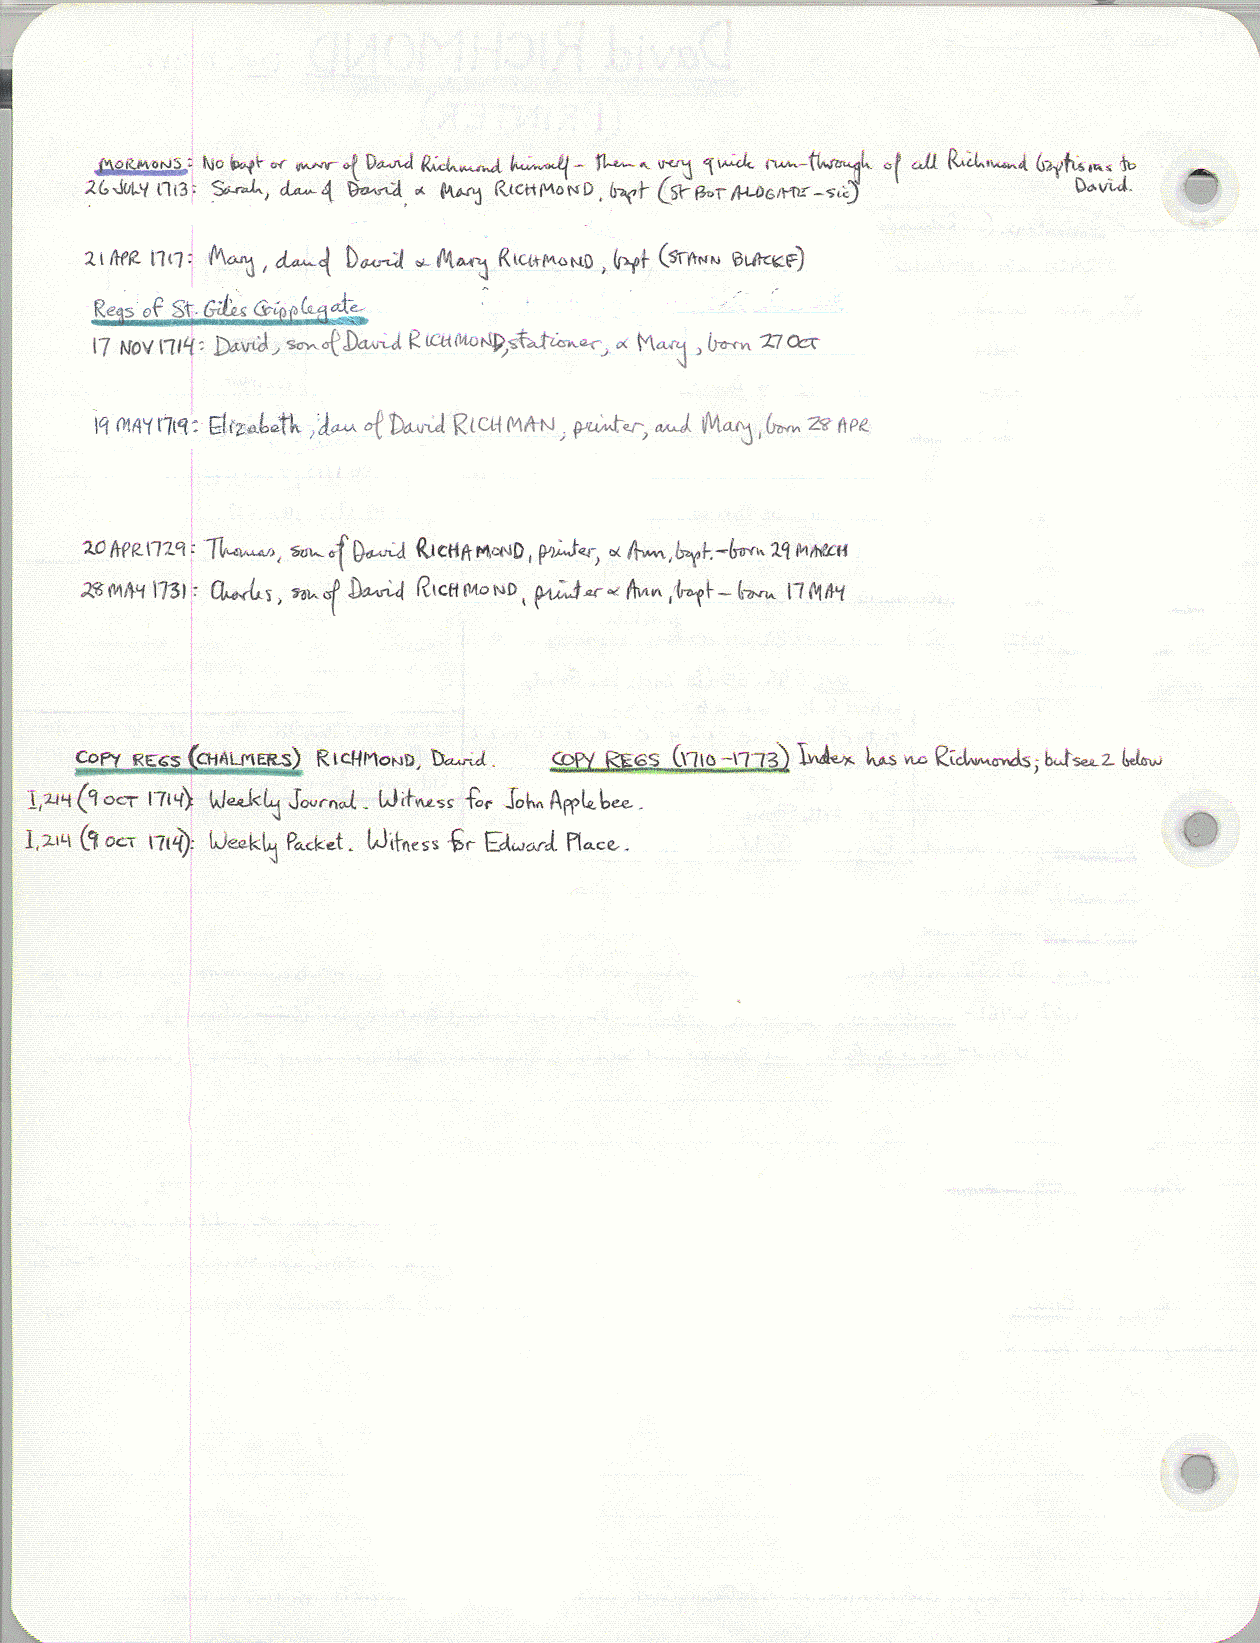 MORMONS: No bapt or marr of David Richmond himself - then a very quick run-through of all Richmond baptisms to David.
26 JULY 1713: Sarah, dau of David & Mary RICHMOND, bapt (ST BOT ALDGATE - sic)
21 APR 1717: Mary, dau of David & Mary RICHMOND, bapt (ST ANN BLACKF)
Regs of St. Giles Cripplegate
17 NOV 1714: David, son of David RICHMOND, stationer, & Mary, born 27 OCT
19 MAY 1719: Elizabeth, dau of David RICHMAN, printer, and Mary, born 28 APR
20 APR 1729: Thomas, son of David RICHAMOND, printer, & Ann, bapt. - born 29 MARCH
28 MAY 1731: Charles, son of David RICHMOND, printer & Ann, bapt - born 17 MAY
COPY REGS (CHALMERS) RICHMOND, David. COPY REGS (1710-1773) Index has no Richmonds; but see 2 below
I, 214 (9 OCT 1714): Weekly Journal. Witness for John Applebee.
I, 214 (9 OCT 1714): Weekly Packet. Witness for Edward Place.